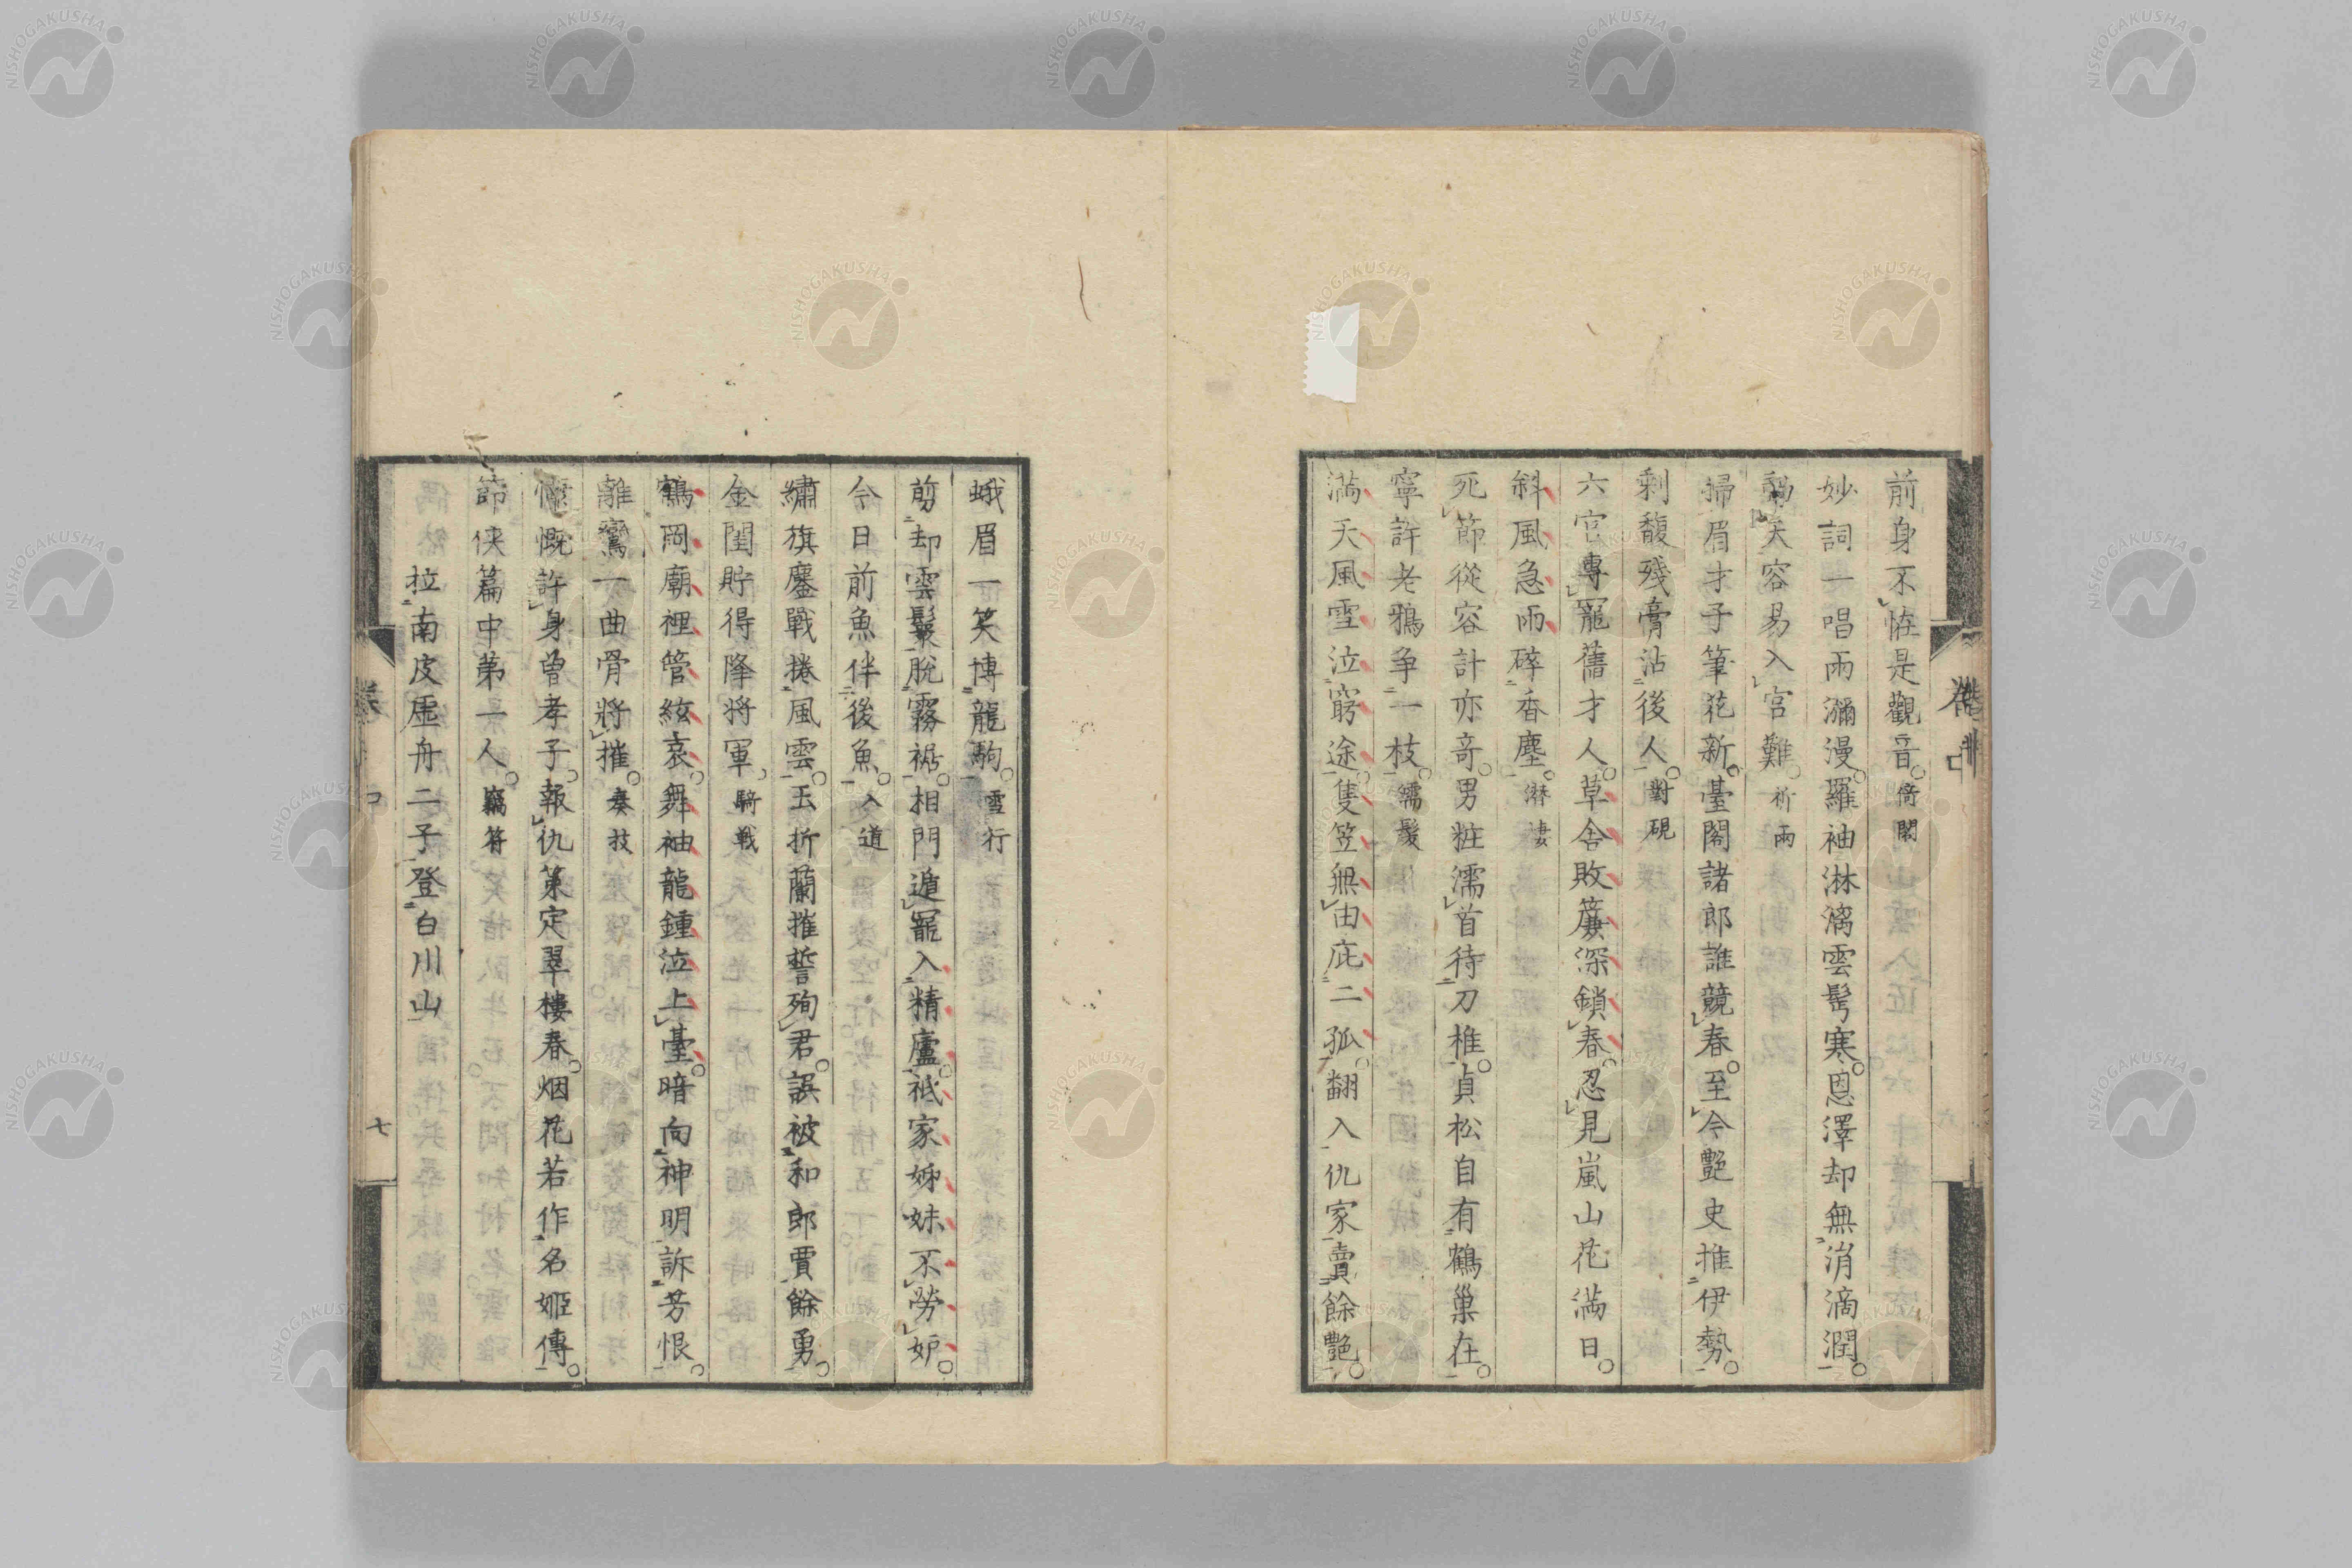 前身不恠是觀音倚閣
妙詞一唱雨瀰漫羅袖淋漓雲髩寒恩澤却無消滴潤
天容易入宮難祈雨
掃眉才子筆花新臺閣諸郎誰競春至今艷史推伊勢
剩馥殘膏沾後人對硯
六宮專寵舊才人草舍敗簾深鎖春忍見嵐山花滿日
斜風急雨碎香塵潜淒
死節從容計亦奇男粧濡首待刀椎貞松自有鶴巢在
寧許老鴉争一枝濡髮
滿天風雪泣窮途隻笠無由庇二孤翻入仇家賣餘艷
蛾眉一笑博龍駒雪行
剪却雲鬟脫霧裾相門遁寵入精廬祗家姊妹不勞妒
今日前魚伴後魚入道
繡旗鏖戰捲風雲玉折蘭摧誓殉君誤被和郎賈餘勇
金閨貯得降將軍騎戰
鶴岡廟裡管絃哀舞袖龍鍾泣上臺暗向神明訴芳恨
離鸞一曲骨將摧奏技
慷慨許身曾孝子報仇策定翠樓春烟花若作名姬傳
節俠篇中第一人竊符
拉南皮虛舟二子登白川山
七
NISHOGAKUSHA